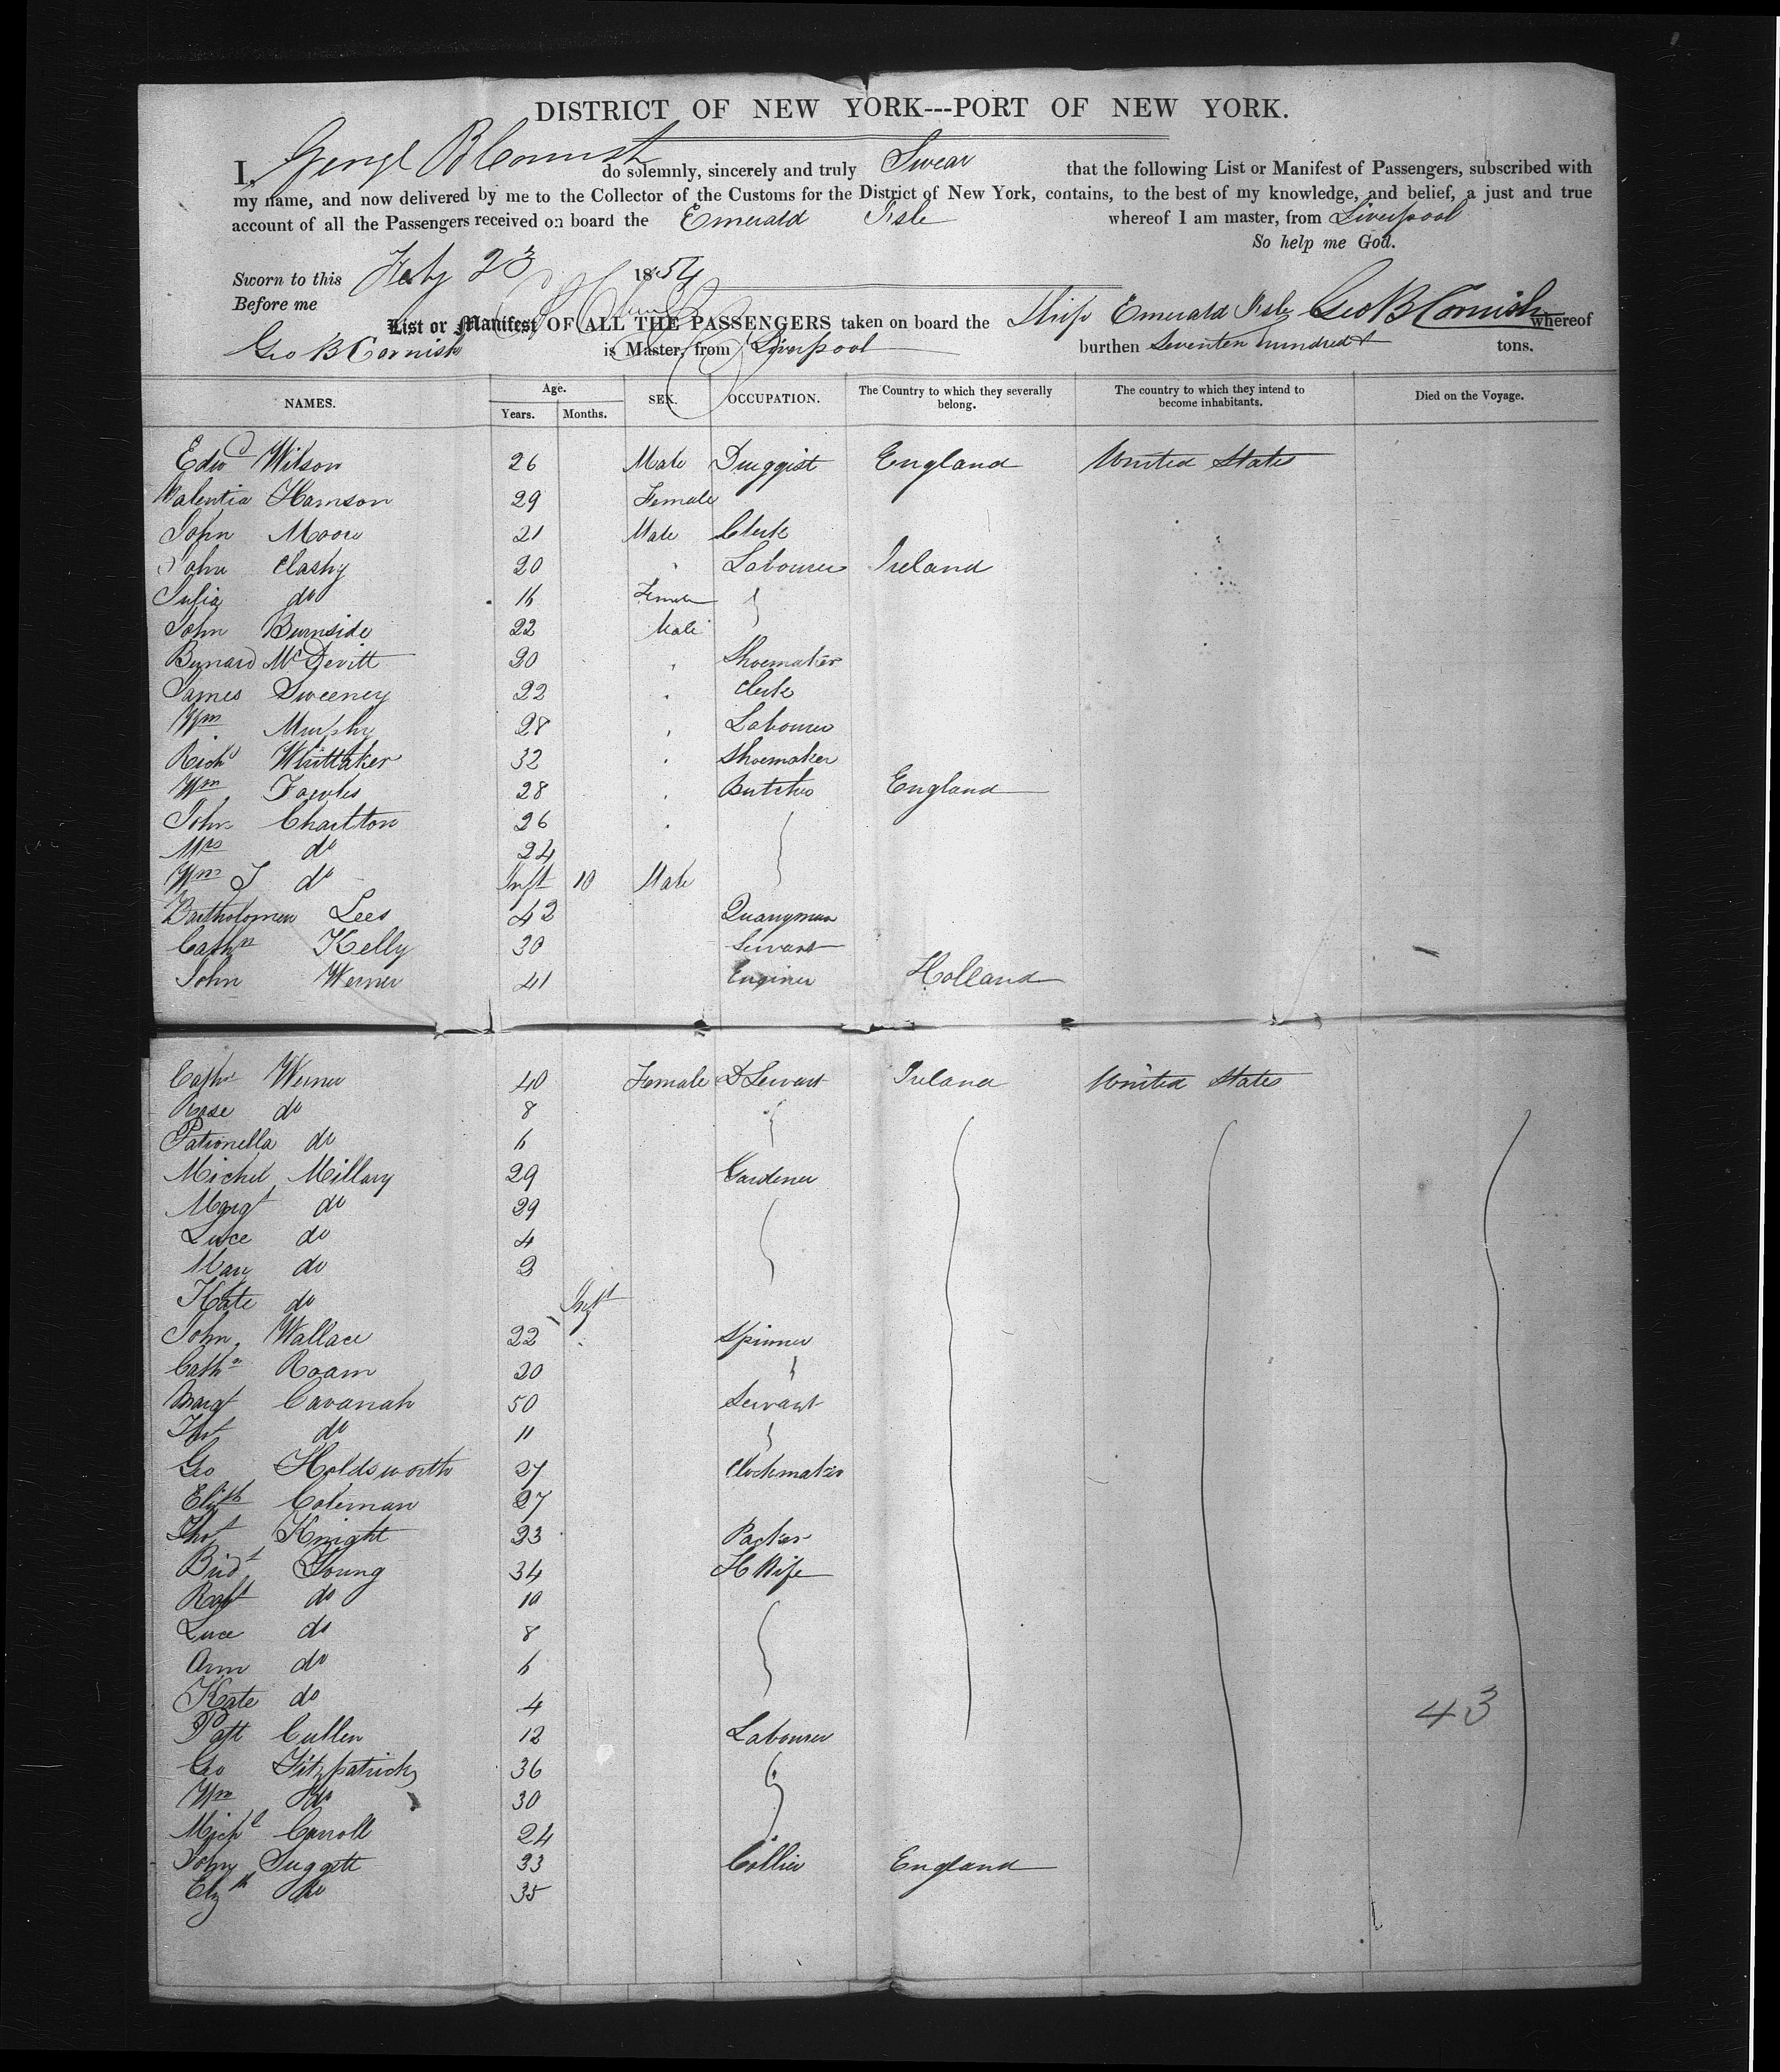 DISTRICT OF NEW YORK---PORT OF NEW YORK.
I, George B Cornish do solemnly, sincerely and truly Swear that the following List or Manifest of Passengers, subscribed with
my name, and now delivered by me to the Collector of the Customs for the District of New York, contains, to the best of my knowledge, and belief, a just and true
account of all the Passengers received on board the Emerald Isle whereof I am master, from Liverpool
So help me God.
Sworn to this Feby 23 1854
Before me
Geo B Cornish
List or Manifest OF ALL THE PASSENGERS taken on board the Ship Emerald Isle whereof
Geo B Cornish is Master, from Liverpool burthen Seventen hundred tons.
NAMES. Age. Years. Months. SEX. OCCUPATION. The Country to which they severally belong. The country to which they intend to become inhabitants. Died on the Voyage.
Edwd Wilson 26 Male Druggist England United States
Valentia Hamson 29 Female
John Moore 21 Male Clerk
John Clashy 20 Labourer Ireland
Julia do 16 Female
John Burnside 22 Male
Bernard McDevitt 20 Shoemaker
James Sweeney 22 Clerk
Wm Murphy 28 Labourer
Richd Whittaker 32 Shoemaker
Wm 28 Butcher England
John Charlton 26
Mrs do 24
Wm J do Inft 10 Male
Bartholomew Lees 42 Quarryman
Cathn Kelly 30 Servant
John Werner 41 Enginer Holland
Cathn Werner 40 Female D Servant Ireland United States
Rose do 8
Patronella do 6
Michel Millary 29 Gardener
Margt do 29
Luce do 4
Mary do 3
Kate do Inft
John Wallace 22 Spinner
Cathn Roam 20
Margt Cavanah 50 Servant
Thos do 11
Geo Holdsworth 27 Clockmaker
Elizth Coleman 27
Thos Knight 23 Packer
Bridt Young 34 H Wife
Robt do 10
Luce do 8
Ann do 6
Kate do 4
43
Patt Cullen 12 Labourer
Geo Fitzpatrick 36
Wm do 30
Michl Carroll 24
John Suggett 33 Collier England
Elzth do 35